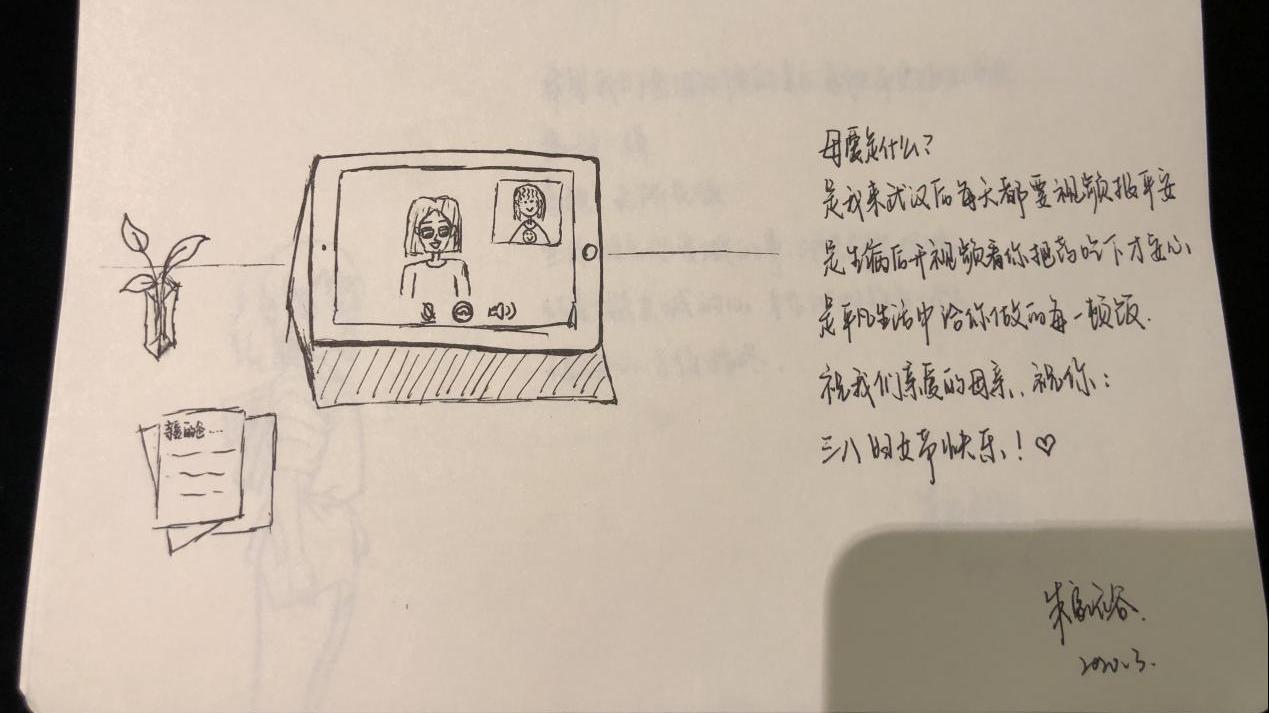 母爱是什么？
是我来武汉后每天都要视频报平安
是生病后开视频看你把药吃下才安心
是平凡生活中给你做的每一顿饭.
祝我们亲爱的母亲，祝你：
三八妇女节快乐！♡
亲爱的爸…
2020.3.